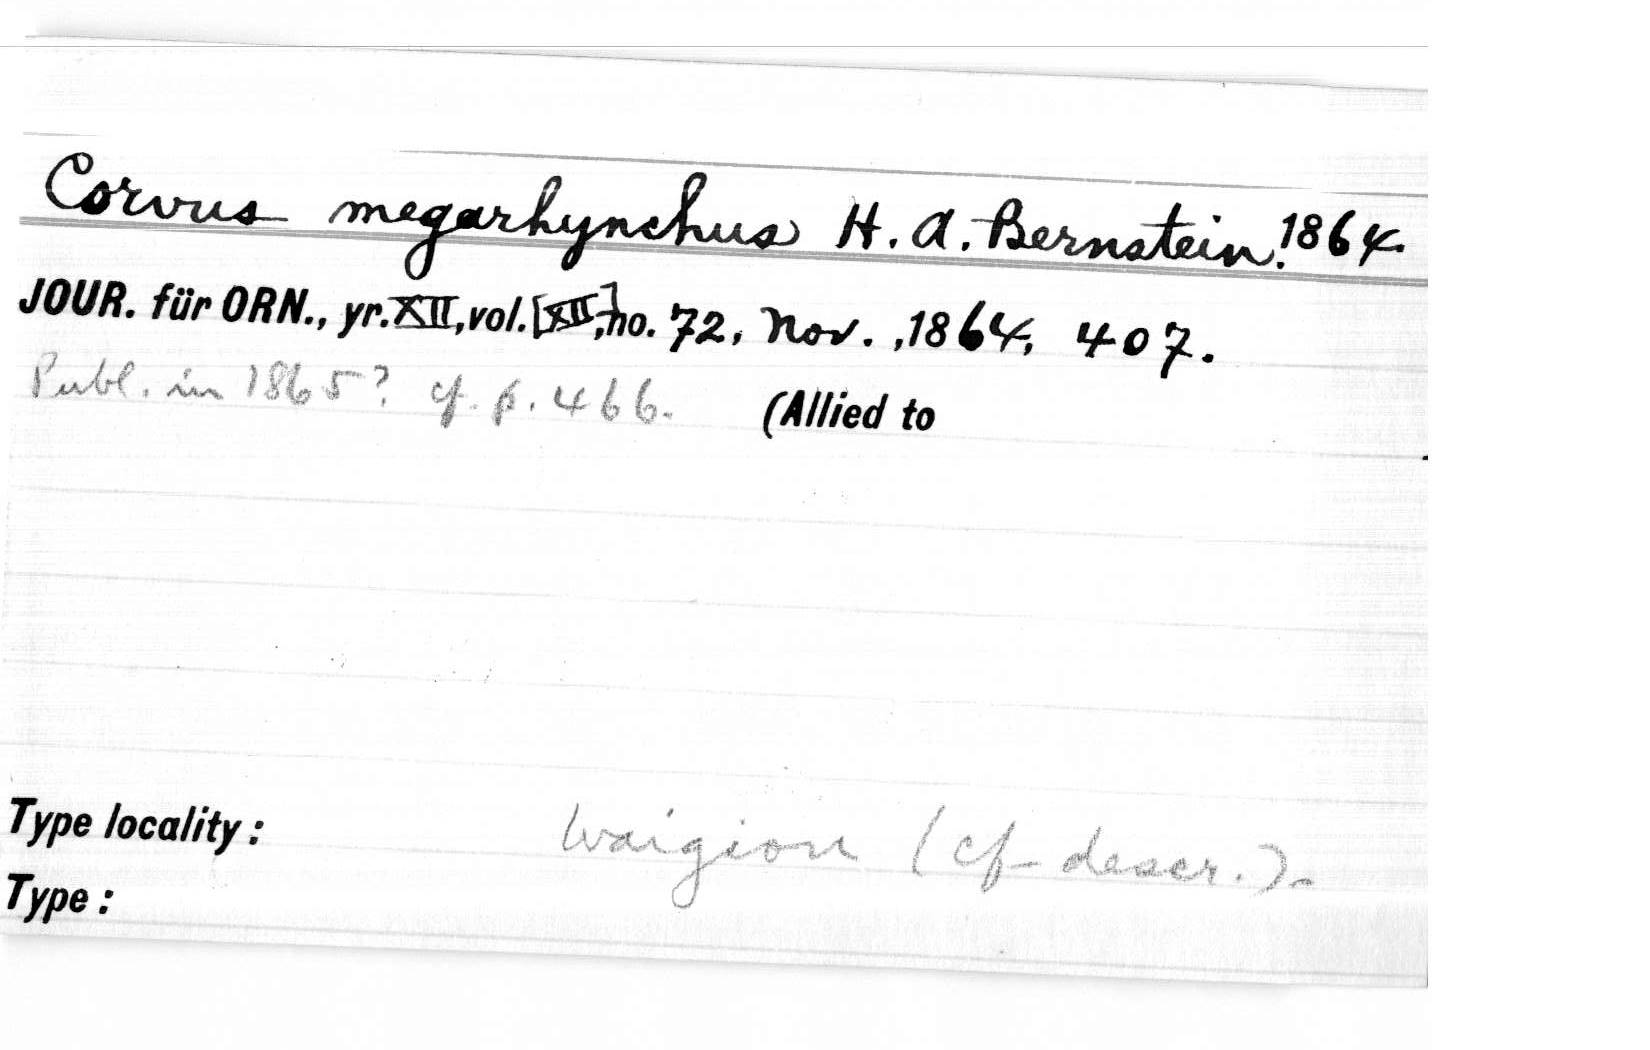 Corvus megarhynchus H. A. Bernstein. 1864.
JOUR. für ORN., yr. XII, vol. [XII], no. 72, Nov. , 1864, 407.
Publ. in 1865? cf. p. 466. (Allied to
Type locality : Waigiou (cf descr.).
Type :